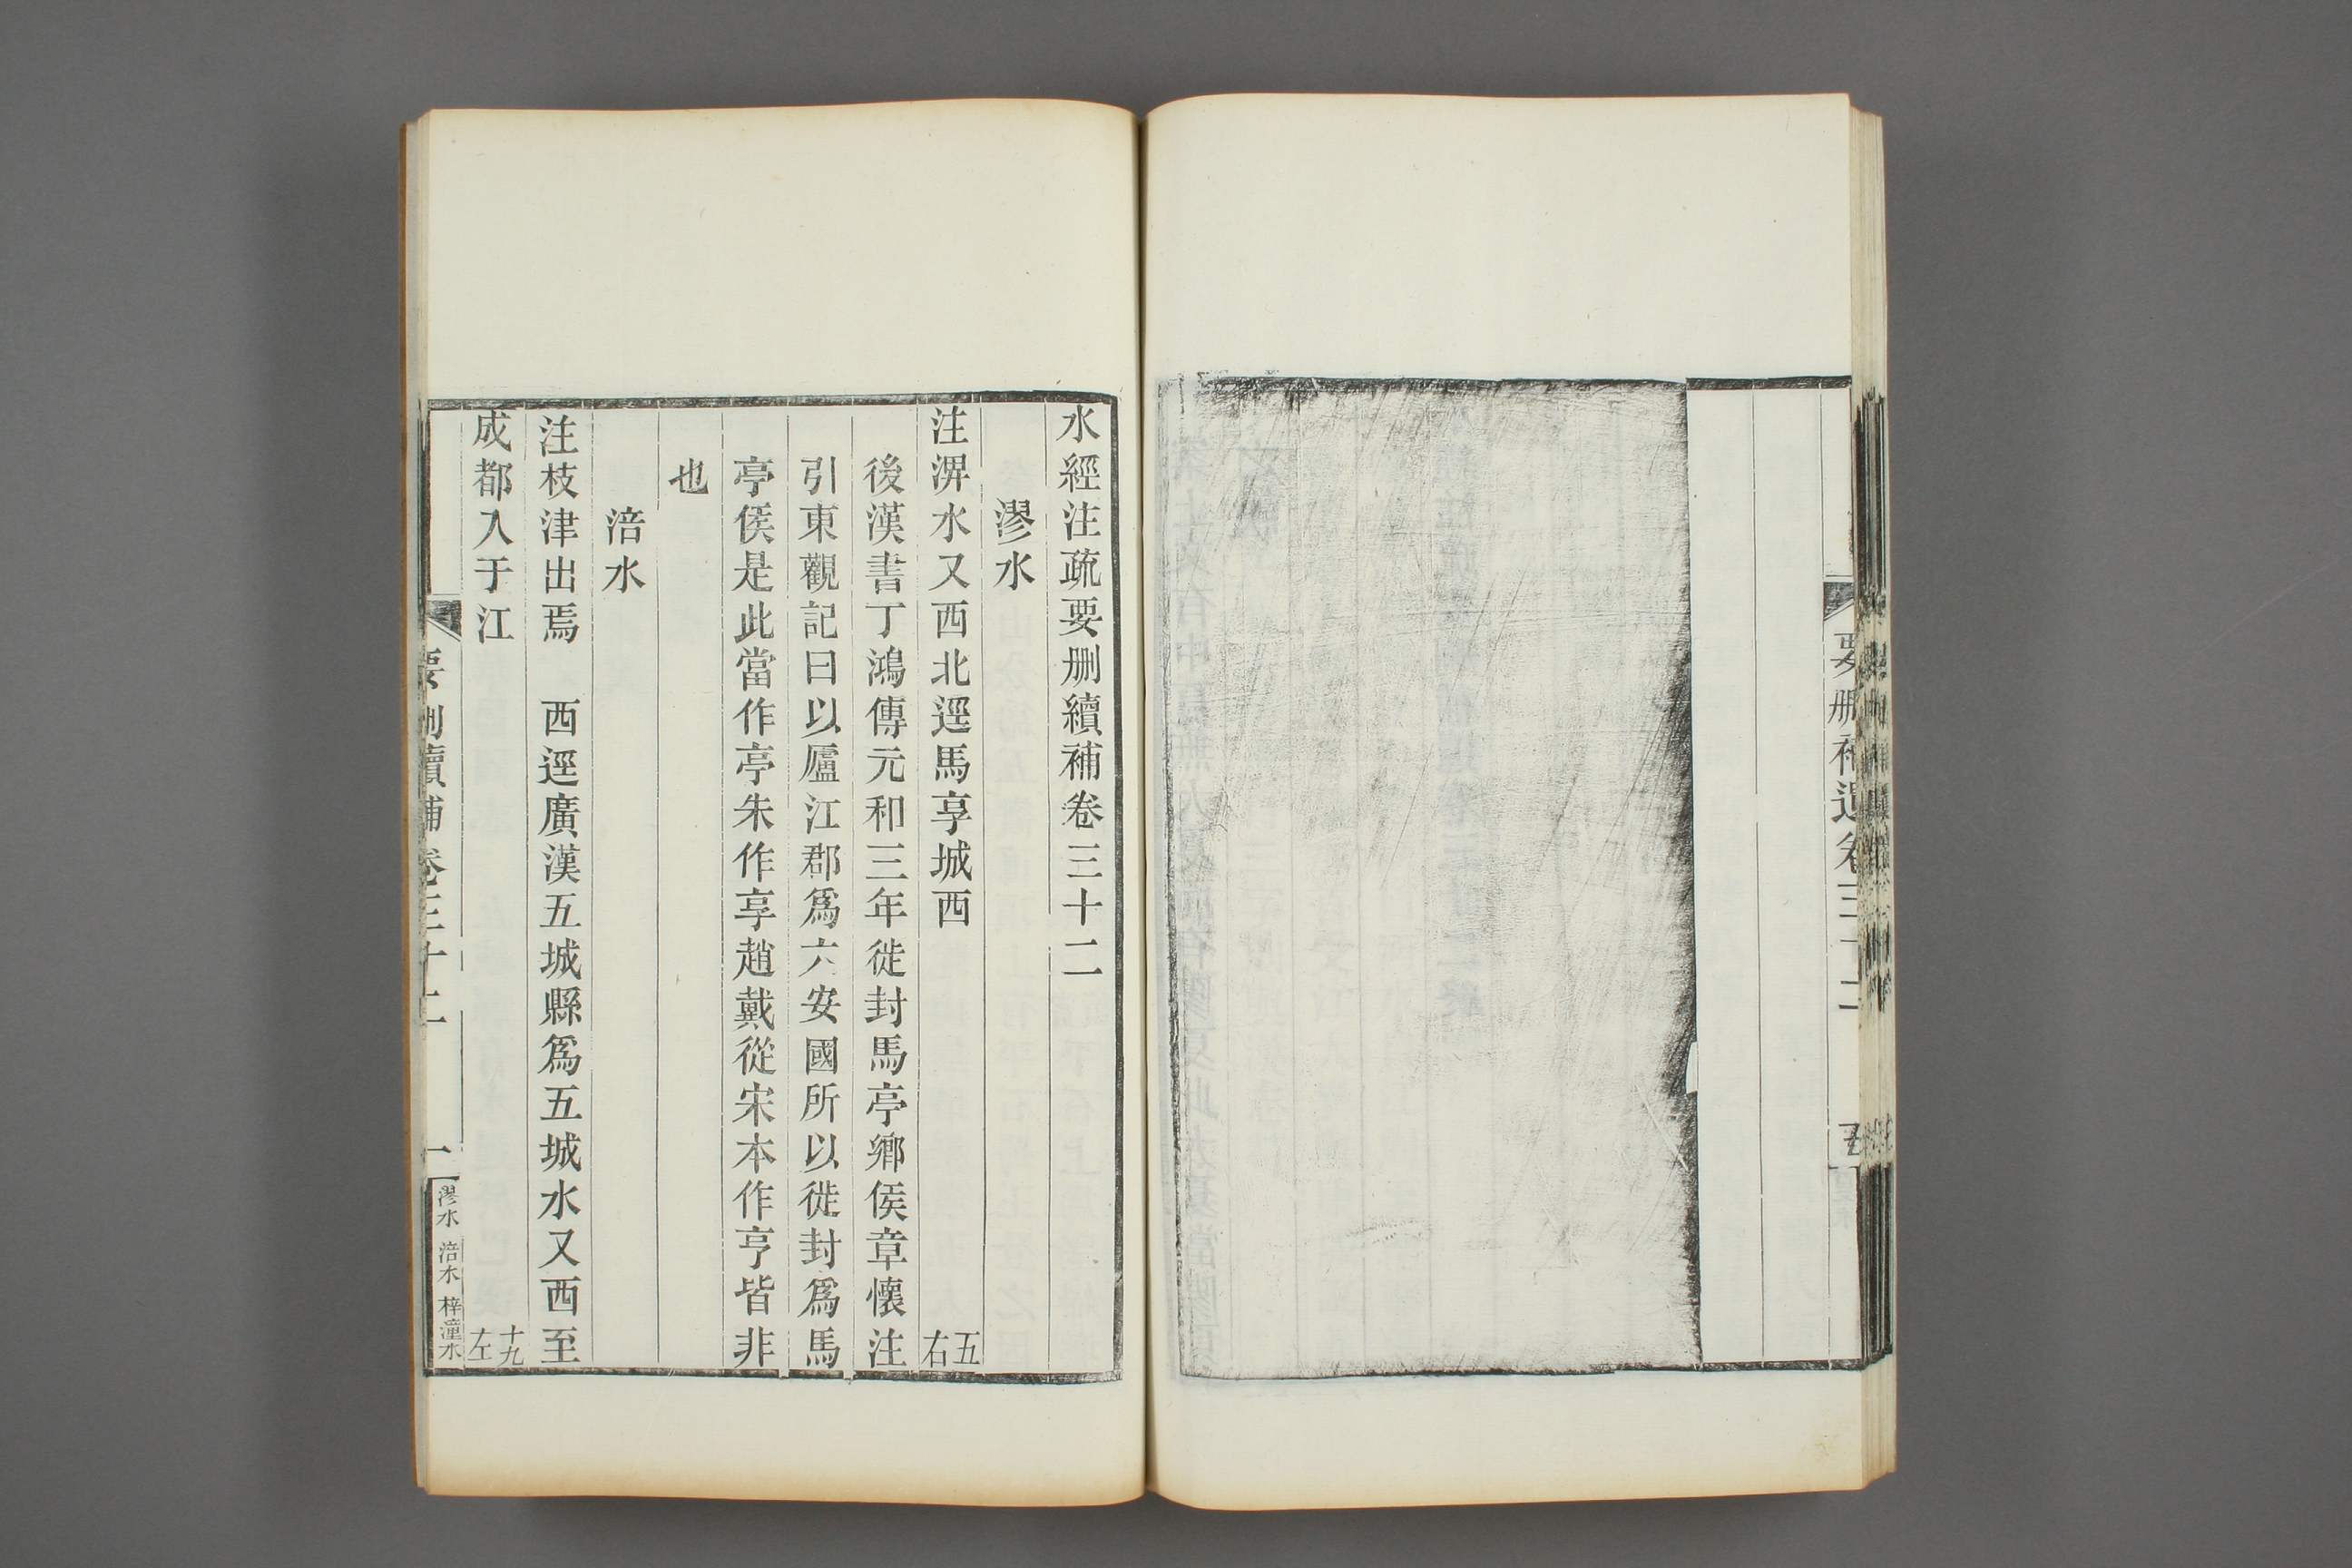 要刪補遺卷三十二
水經注疏要刪續補卷三十二
漻水
注淠水又西北逕馬享城西 五右
後漢書丁鴻傳元和三年徙封馬亭鄉侯章懷注
引東觀記曰以廬江郡爲六安國所以徙封爲馬
亭侯是此當作亭朱作享趙戴從宋本作亨皆非
也
涪水
注枝津出焉 西逕廣漢五城縣爲五城水又西至
成都入于江 十九左
要刪續補卷三十二 一 漻水 涪水 梓潼水